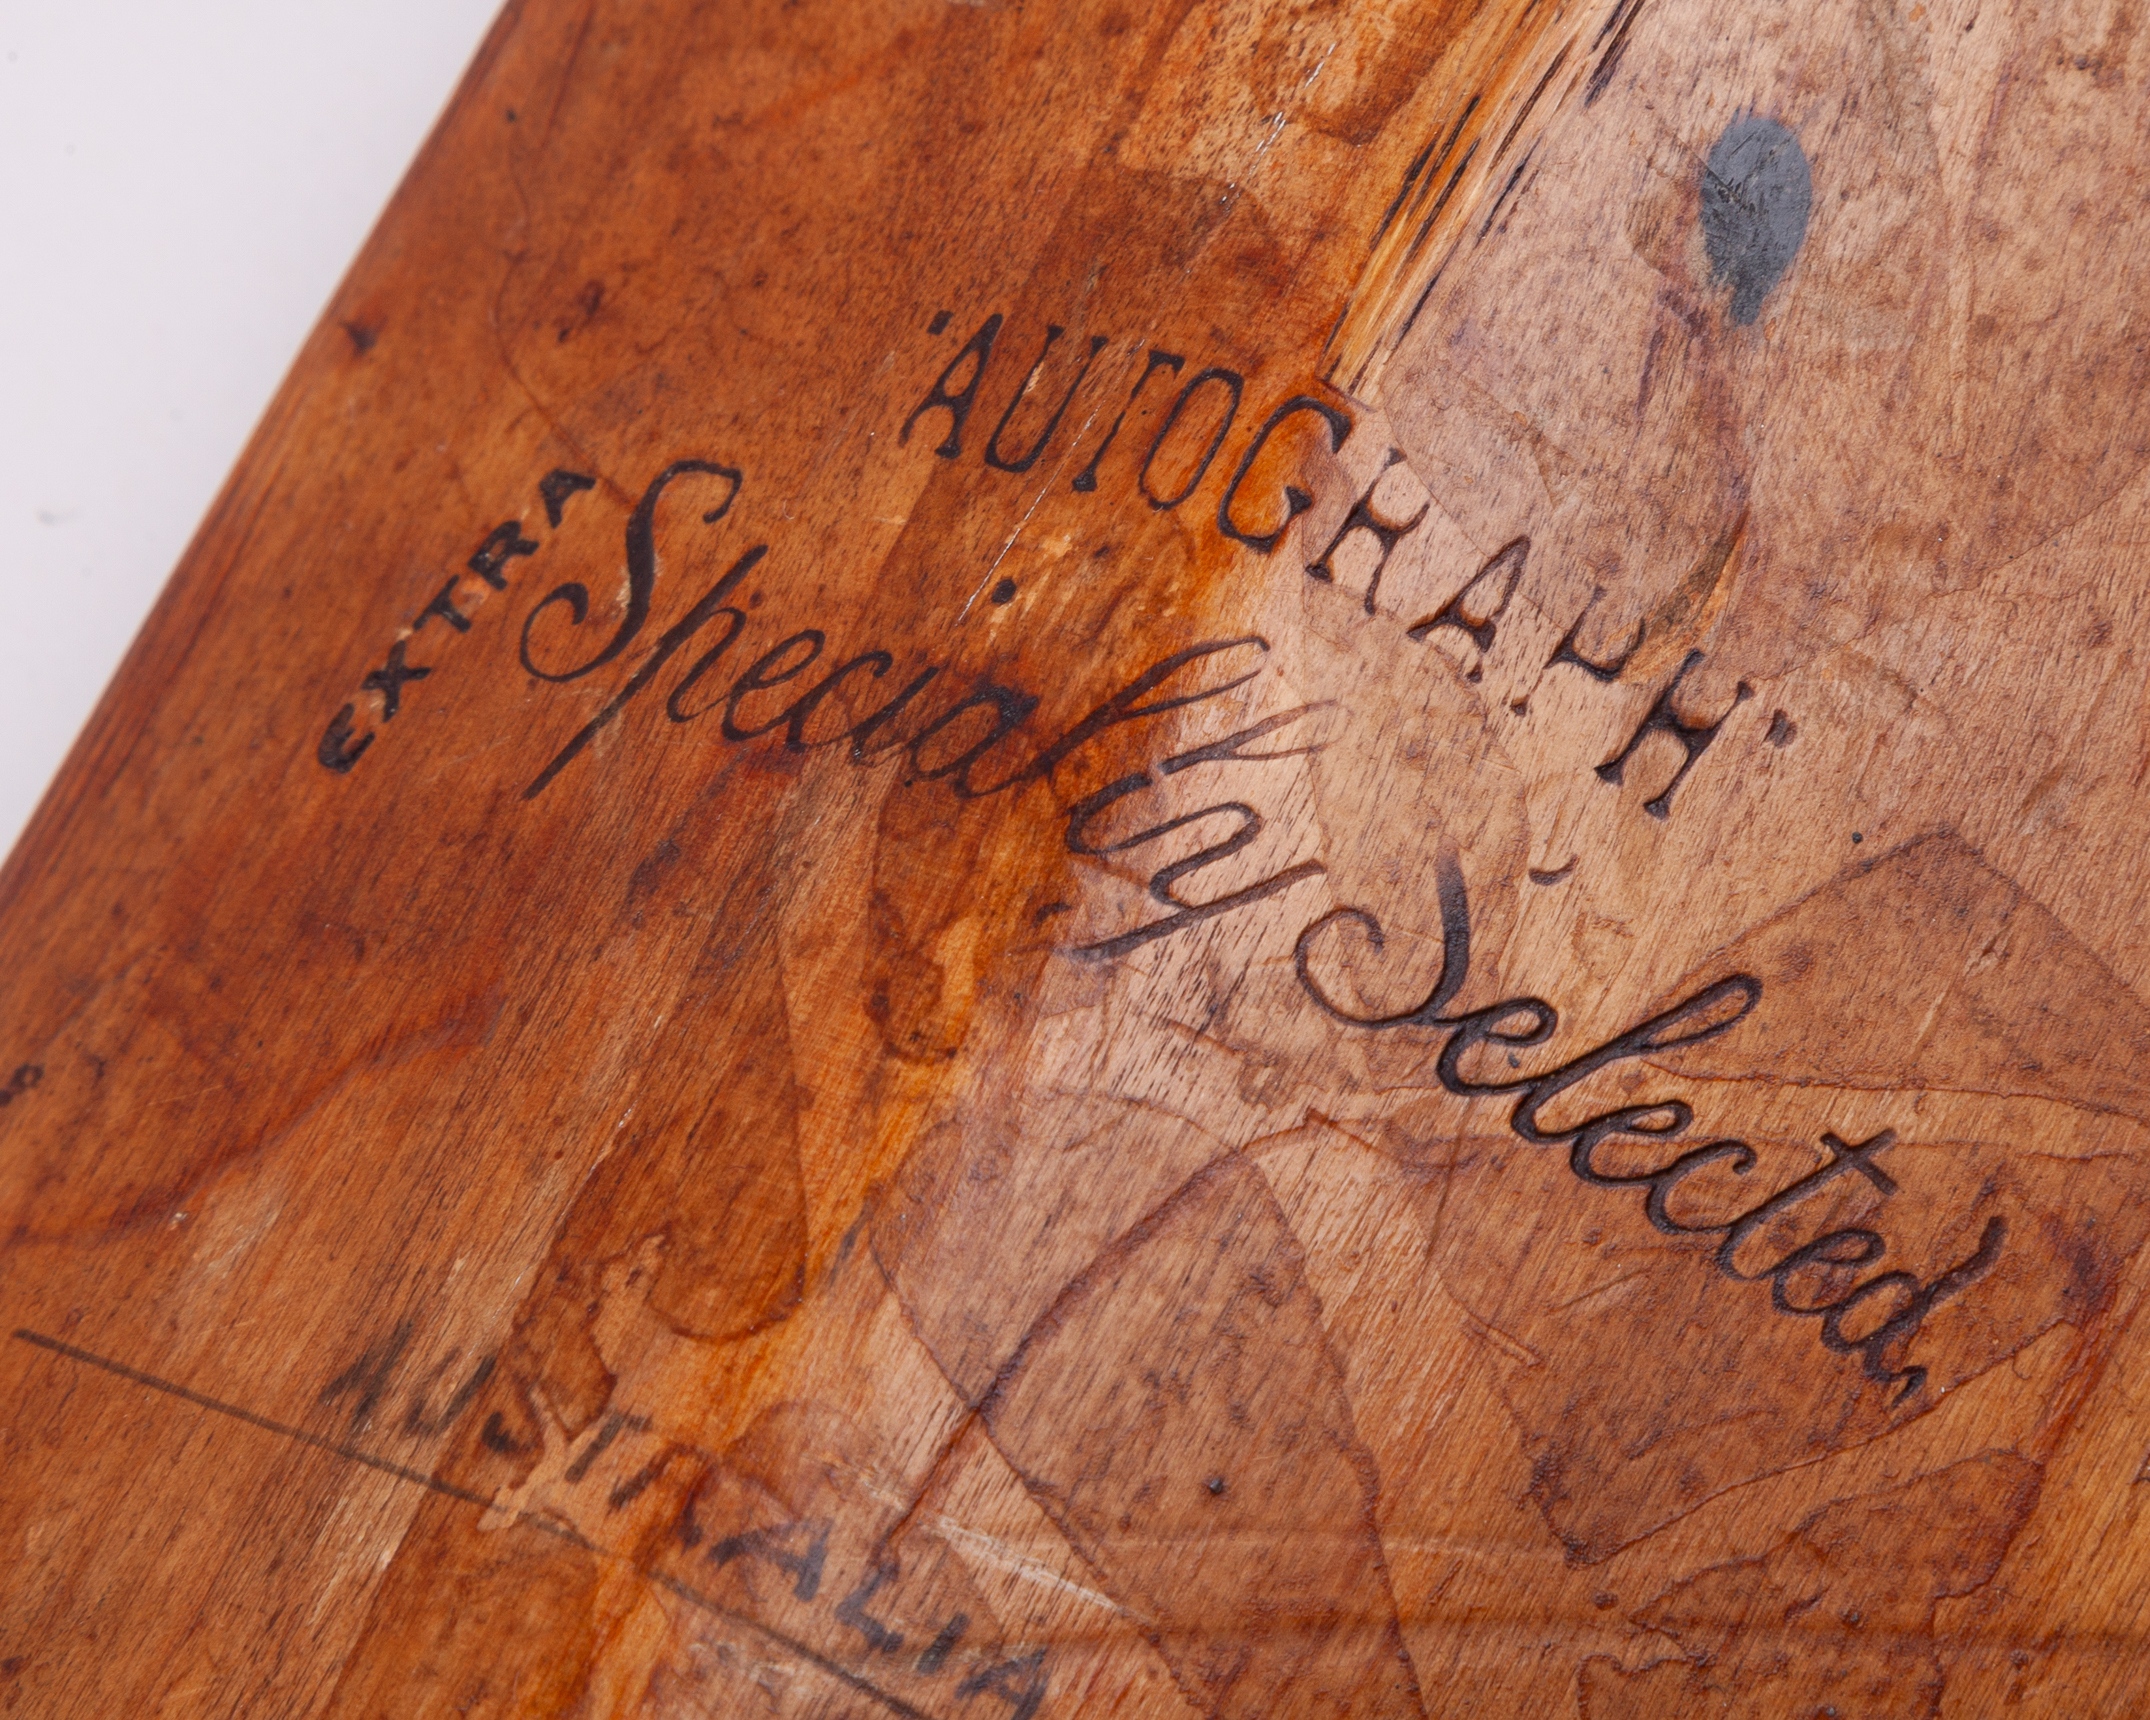 "AUTOGRAPH"
EXTRA
Specially Selected,
AUSTRALIA